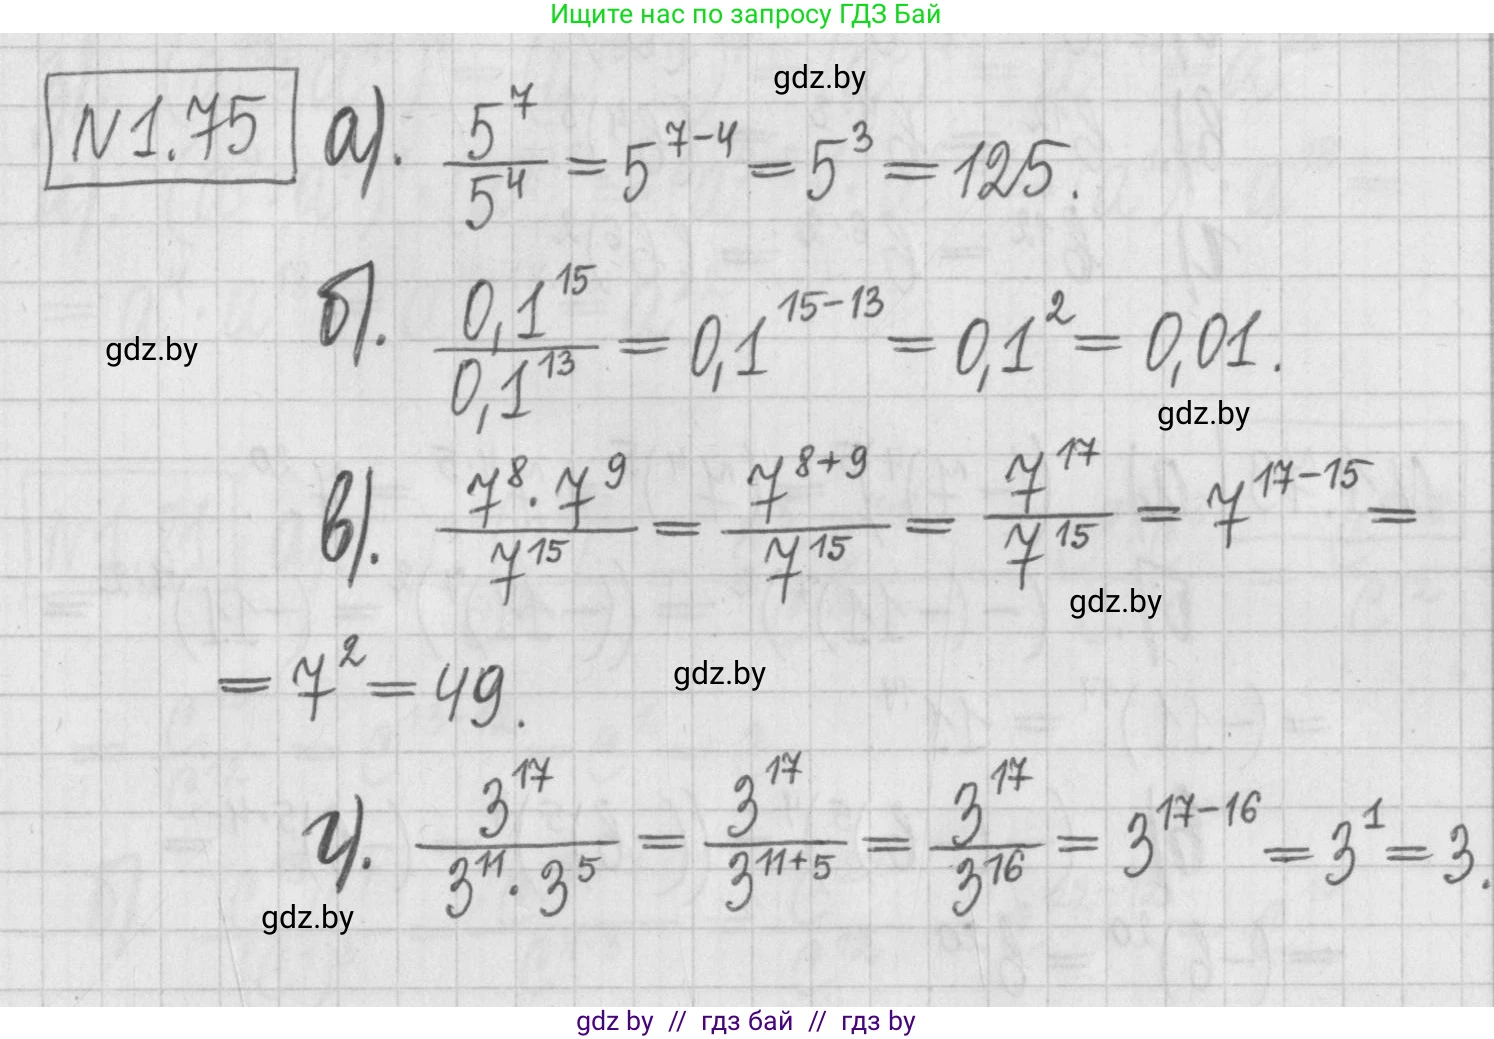 Ищите нас по запросу ГДЗ Бай
gdz.by
N1.75 а). 5^7/5^4 = 5^{7-4} = 5^3 = 125.
б). 0,1^{15}/0,1^{13} = 0,1^{15-13} = 0,1^2 = 0,01.
gdz.by
gdz.by
в). 7^8·7^9/7^{15} = 7^{8+9}/7^{15} = 7^{17}/7^{15} = 7^{17-15} =
gdz.by
= 7^2 = 49.
gdz.by
г). 3^{17}/3^{11}·3^5 = 3^{17}/3^{11+5} = 3^{17}/3^{16} = 3^{17-16} = 3^1 = 3.
gdz.by
gdz by // гдз бай // гдз by